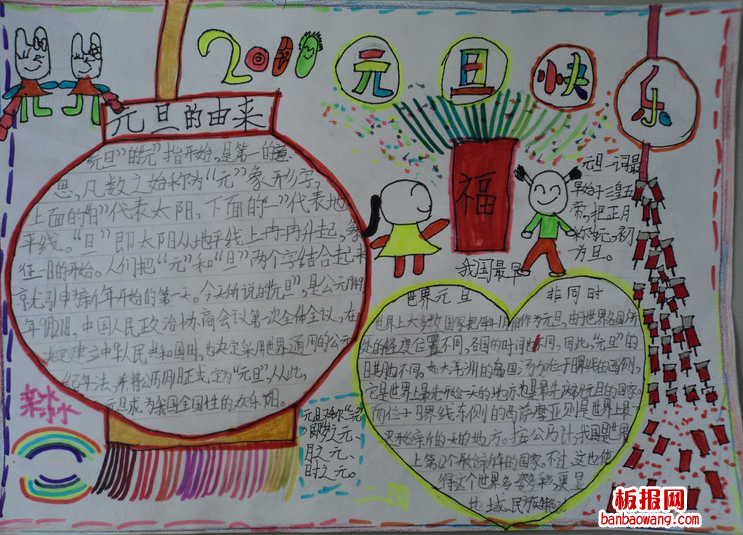 2011元旦快乐
元旦的由来
"元旦"的"元"指开始,是第一的意
思,凡数之始称为"元"象形字,
上面的"日"代表太阳,下面的"一"代表地
平线。"旦"即太阳从地平线上冉冉升起,象
征一日的开始。人们把"元"和"旦"两个字结合起来
就引申为新年开始的第一天。
中国人民政治协商会议第一次全体会议,在
决定建立中华人民共和国时,也决定采用世界通用的公元
纪年法,并将公历1月1日正式定为"元旦",从此,
元旦成为我国全国性的欢乐节。
福
元旦一词最
早始于三皇五
我国最早
世界元旦 非同时
世界上大多数国家把每年1月1日作为元旦,由于世界各国所
处的经度位置不同,各国的时间也不同,因此,"元旦"的
日期也不同。
它是世界上最先开始新的一天的地方也是最先庆祝元旦的国家。
而位于日界线东侧的西萨摩亚则是世界上最
按公历计,我国是世界
上第12个开始新年的国家。不过,这也使
得这个世界多姿多彩,更具
地域、民族
元旦又称"三元"
即岁之元、
月之元、
时之元。
板报网
banbaowang.com